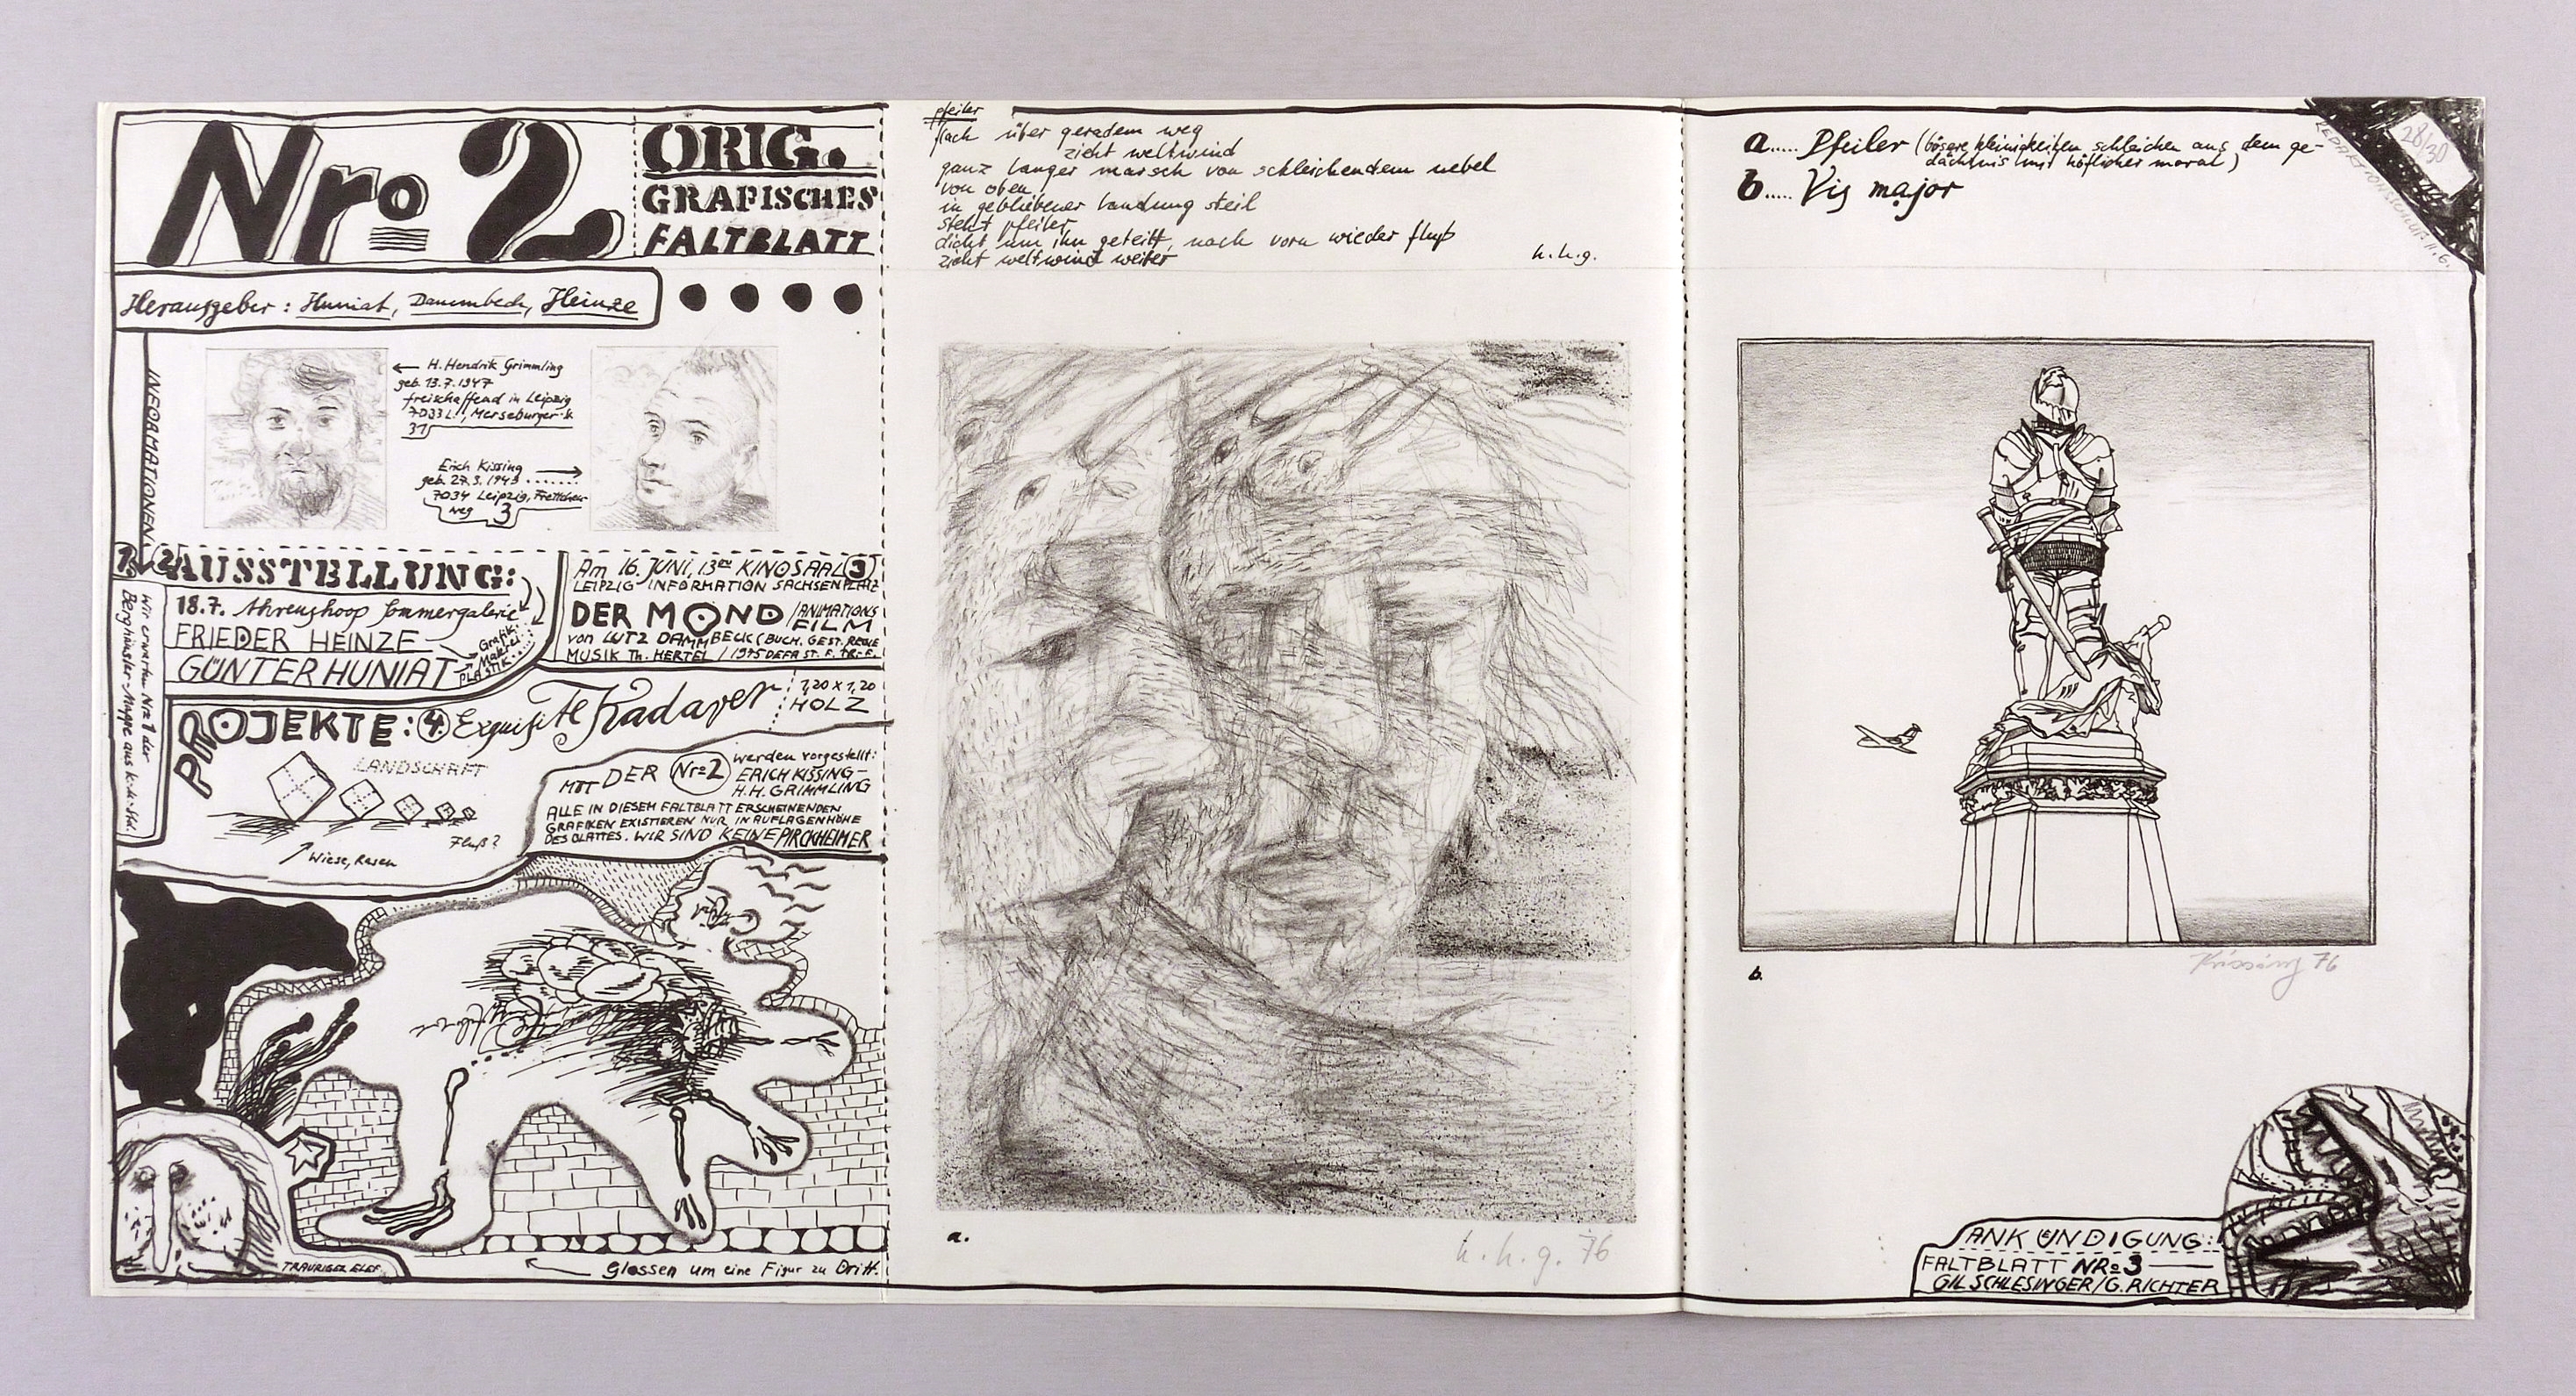 Nro 2
ORIG.
GRAFISCHES
FALTBLATT
Herausgeber: Huniat, Dammbeck, Heinze
INFORMATIONEN
← H. Hendrik Grimmling
geb. 13.7.1947
freischaffend in Leipzig
7033 L., Merseburger
31
Erich Kissing →
geb. 27.3.1943 ........
7034 Leipzig, Frettchen-
weg 3
1. 2. AUSSTELLUNG:
18.7. Ahrenshoop Sommergalerie
FRIEDER HEINZE
GÜNTER HUNIAT
Grafik
Malerei
PLASTIK
Wir erwarten Nr. 1 der
Berghäusler-Mappe aus
Am 16. JUNI, 13 KINOSAAL 3
LEIPZIG-INFORMATION SACHSENPLATZ
DER MOND / ANIMATIONS
FILM
von LUTZ DAMMBECK (BUCH. GEST. REGIE
MUSIK Th. HERTEL / 1975 DEFA ST. F. TR.-F.
PROJEKTE: 4. Exquisite Kadaver
1,20 x 1,20
HOLZ
LANDSCHAFT
Fluß?
Wiese, Rasen
MIT DER Nro 2 werden vorgestellt:
ERICH KISSING –
H. H. GRIMMLING
ALLE IN DIESEM FALTBLATT ERSCHEINENDEN
GRAFIKEN EXISTIEREN NUR IN AUFLAGENHÖHE
DES BLATTES. WIR SIND KEINE PIRCKHEIMER
TRAURIGER ELEF.
← Glossen um eine Figur zu Dritt.
pfeiler
flach über geradem weg
zieht weltwind
ganz langer marsch von schleichendem nebel
von oben
in gebliebener landung steil
steht pfeiler
dicht um ihn geteilt, nach vorn wieder fluß
zieht weltwind weiter
h.h.g.
a.
h.h.g. 76
a..... Pfeiler (bösere kleinigkeiten schleichen aus dem ge-
dächtnis mit höflicher moral)
b..... Vis major
28/30
REDAKTIONSSCHLUß: 11.6.
b.
Kissing 76
ANKÜNDIGUNG:
FALTBLATT NRo 3
GIL SCHLESINGER/G. RICHTER